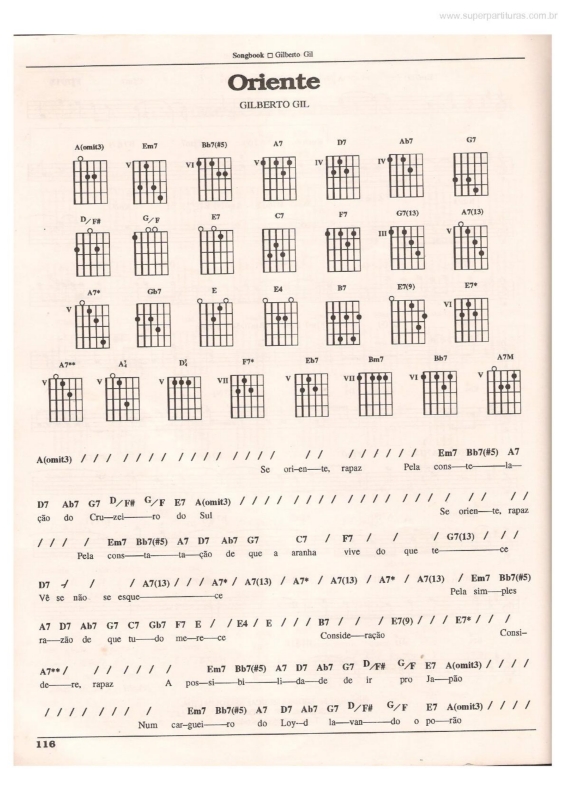 www.superpartituras.com.br
Songbook □ Gilberto Gil
Oriente
GILBERTO GIL
A(omit3) Em7 Bb7(#5) A7 D7 Ab7 G7
V VI V IV IV
D/F# G/F E7 C7 F7 G7(13) A7(13)
III V
A7* Gb7 E E4 B7 E7(9) E7*
V VI
A7** A7/4 D7/4 F7* Eb7 Bm7 Bb7 A7M
V V V VII V VII VI V
A(omit3) / / / / / / / / / / / / / / / / / / / / Em7 Bb7(#5) A7
Se ori-en—te, rapaz Pela cons—te———la—
D7 Ab7 G7 D/F# G/F E7 A(omit3) / / / / / / / / / / / / / / / / / / /
ção do Cru—zei——ro do Sul Se orien—te, rapaz
/ / / / Em7 Bb7(#5) A7 D7 Ab7 G7 C7 / F7 / / / G7(13) / / /
Pela cons——ta——ta—ção de que a aranha vive do que te———ce
D7 / / / A7(13) / / / A7* / A7(13) / A7* / A7(13) / A7* / A7(13) / Em7 Bb7(#5)
Vê se não se esque———ce Pela sim—ples
A7 D7 Ab7 G7 C7 Gb7 F7 E / / E4 / E / / / B7 / / / E7(9) / / / E7* / / /
ra—zão de que tu—do me—re—ce Conside—ração Consi–
A7** / / / / / / / Em7 Bb7(#5) A7 D7 Ab7 G7 D/F# G/F E7 A(omit3) / / / /
de—re, rapaz A pos—si—bi——li—da—de de ir pro Ja—pão
/ / / / / / / / Em7 Bb7(#5) A7 D7 Ab7 G7 D/F# G/F E7 A(omit3) / / / /
Num car-guei—ro do Loy—d la—van——do o po—rão
116